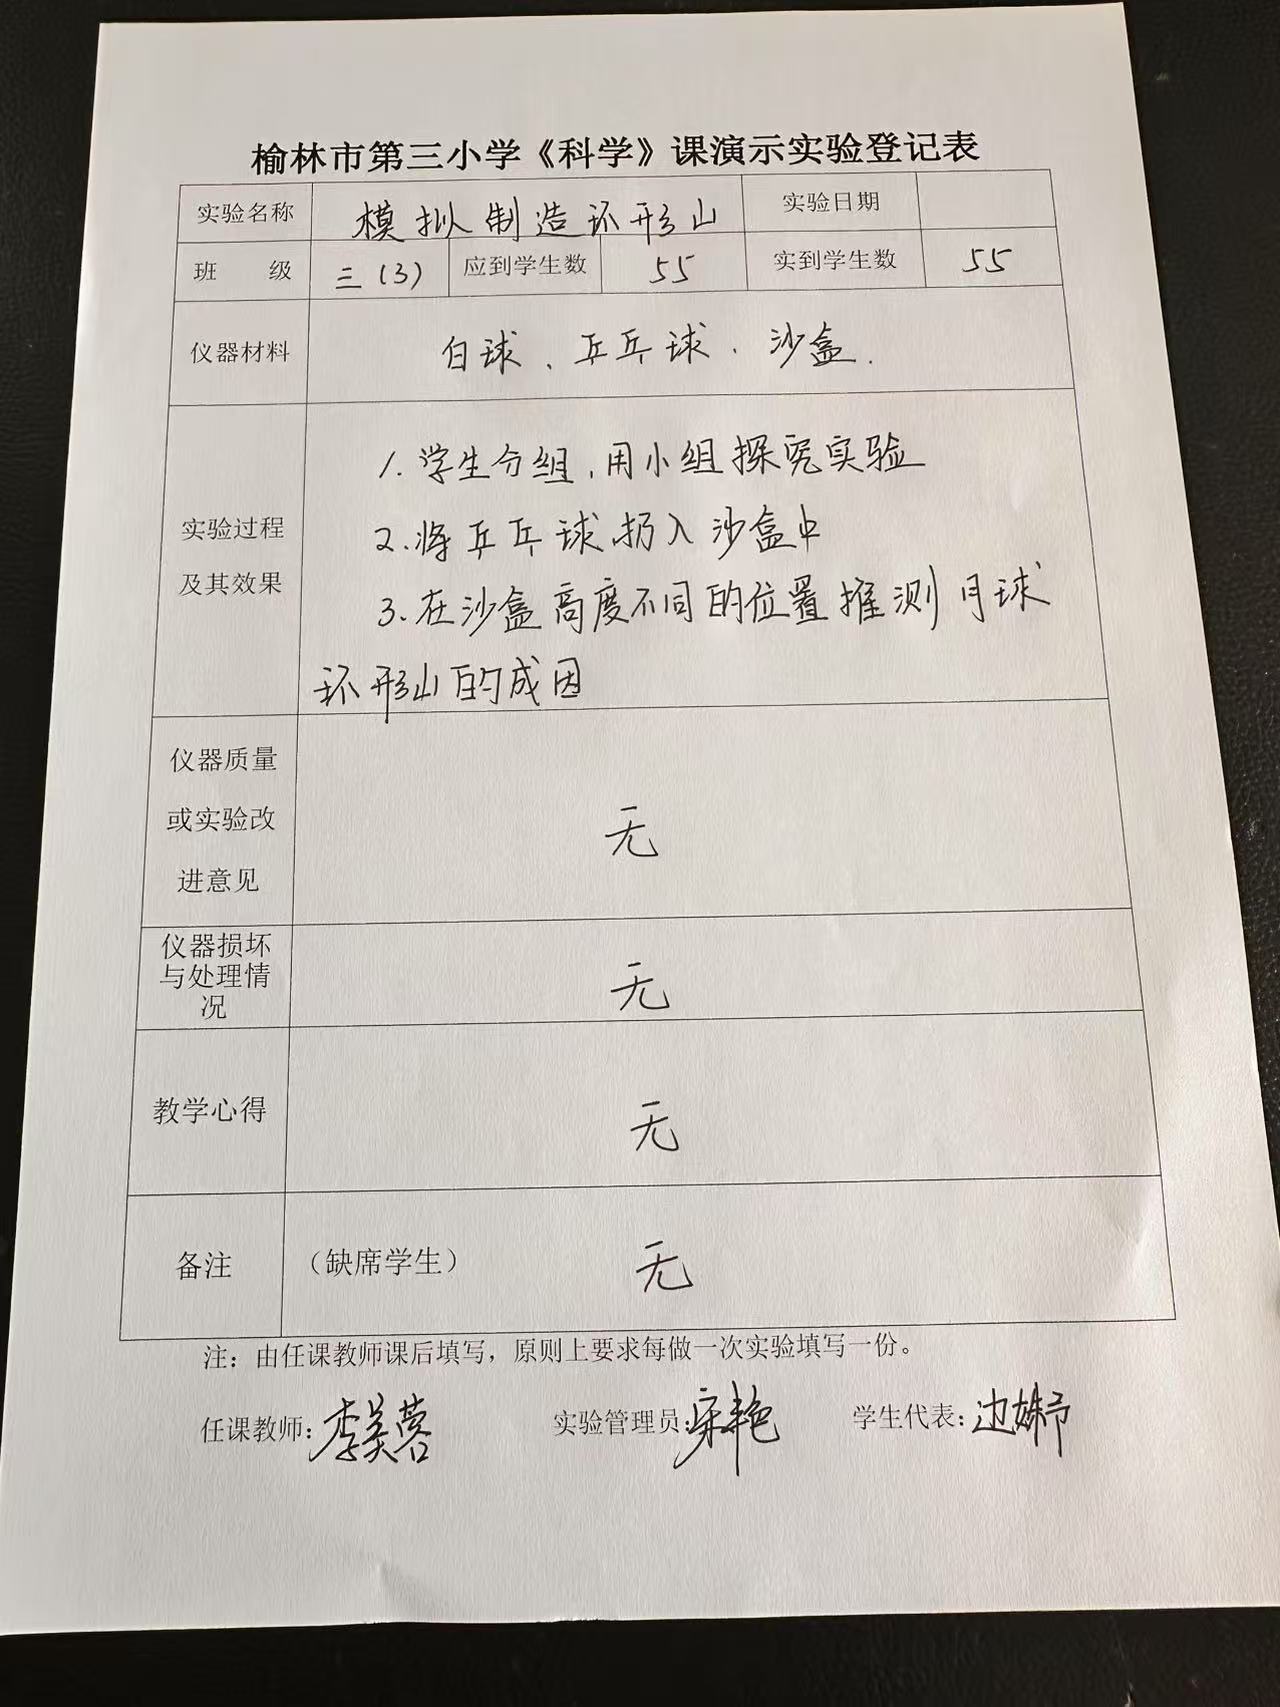 榆林市第三小学《科学》课演示实验登记表
实验名称 模拟制造环形山 实验日期
班 级 三(3) 应到学生数 55 实到学生数 55
仪器材料 白球、乒乓球、沙盒.
实验过程
及其效果
1.学生分组,用小组探究实验
2.将乒乓球扔入沙盒中
3.在沙盒高度不同的位置推测月球
环形山的成因
仪器质量
或实验改
进意见
无
仪器损坏
与处理情
况
无
教学心得 无
备注 (缺席学生) 无
注：由任课教师课后填写，原则上要求每做一次实验填写一份。
任课教师:李美蓉 实验管理员:宋艳 学生代表:边姝予